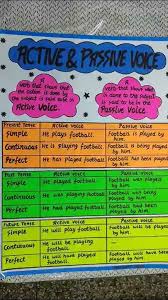 ACTIVE & PASSIVE VOICE
A verb that shows that the action is done by the subject is said to be in Active Voice.
A verb that shows what is done to the subject is said to be in the Passive Voice
Present Tense Active Voice Passive Voice
Simple He plays football. Football is played by him.
Continuous He is playing football. Football is being played by him.
Perfect He has played football. Football has been played by him.
Past Tense Active Voice Passive Voice
Simple He played football. Football was played by him.
Continuous He was playing football. Football was being played by him.
Perfect He had played football. Football had been played by him.
Future Tense Active Voice Passive Voice
Simple He will play football. Football will be played by him.
Continuous He will be playing
Perfect He will have played football. Football will have been played by him.